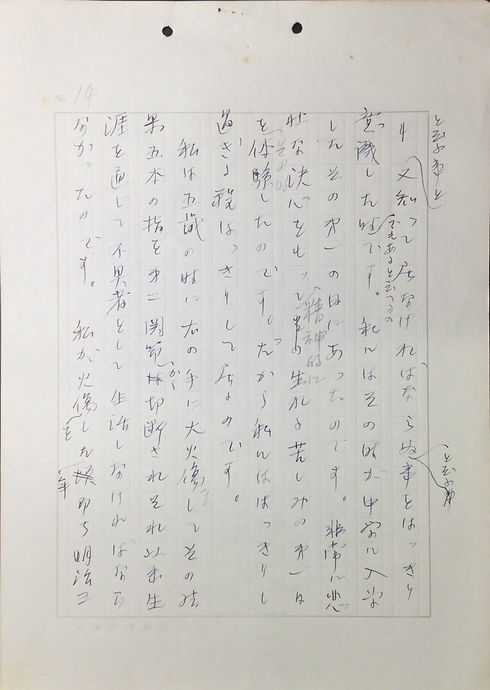 No. 14
と云ふ事と
又知って居なければならぬ事をはっきり
と云ふ事
意識した時です。私にはその時が中学に入学
でもあると云へるの
した その第一の日にあったのです。非常に悲
壮な決心をもって 生れる苦しみの第一日
精神的に
その時
を体験したのです。だから私にははっきりし
過ぎる程はっきりして居るのです。
私は五歳の時に右の手に大火傷をしてその結
果五本の指を第二関節から切断されそれ以来生
涯を通じて不具者として生活しなければなら
なかったのです。私が火傷をした年即ち明治三